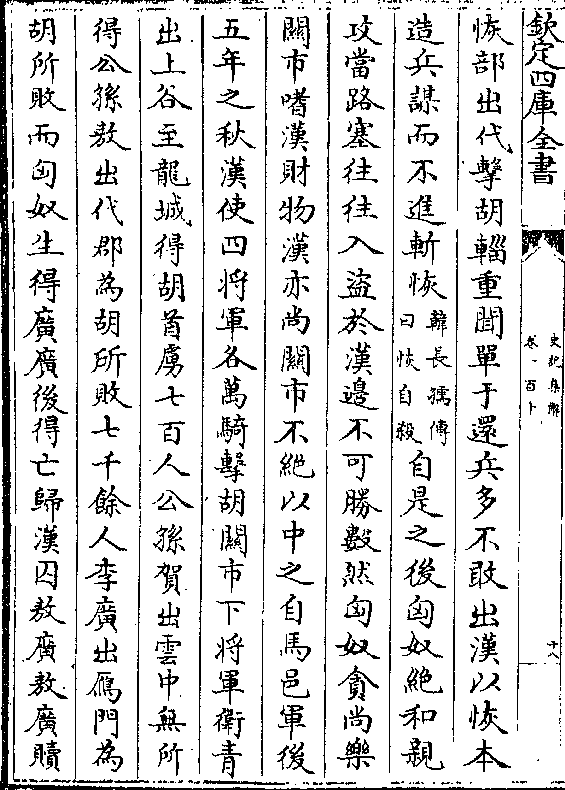 欽定四庫全書
史記集解
卷一百十
十八
恢部出代擊胡輜重聞單于還兵多不敢出漢以恢本
造兵謀而不進斬恢韓長孺傳曰恢自殺自是之後匈奴絶和親
攻當路塞往往入盜於漢邊不可勝數然匈奴貪尚樂
關市嗜漢財物漢亦尚關市不絶以中之自馬邑軍後
五年之秋漢使四將軍各萬騎擊胡關市下將軍衛青
出上谷至龍城得胡首虜七百人公孫賀出雲中無所
得公孫敖出代郡為胡所敗七千餘人李廣出鴈門為
胡所敗而匈奴生得廣廣後得亡歸漢囚敖廣敖廣贖